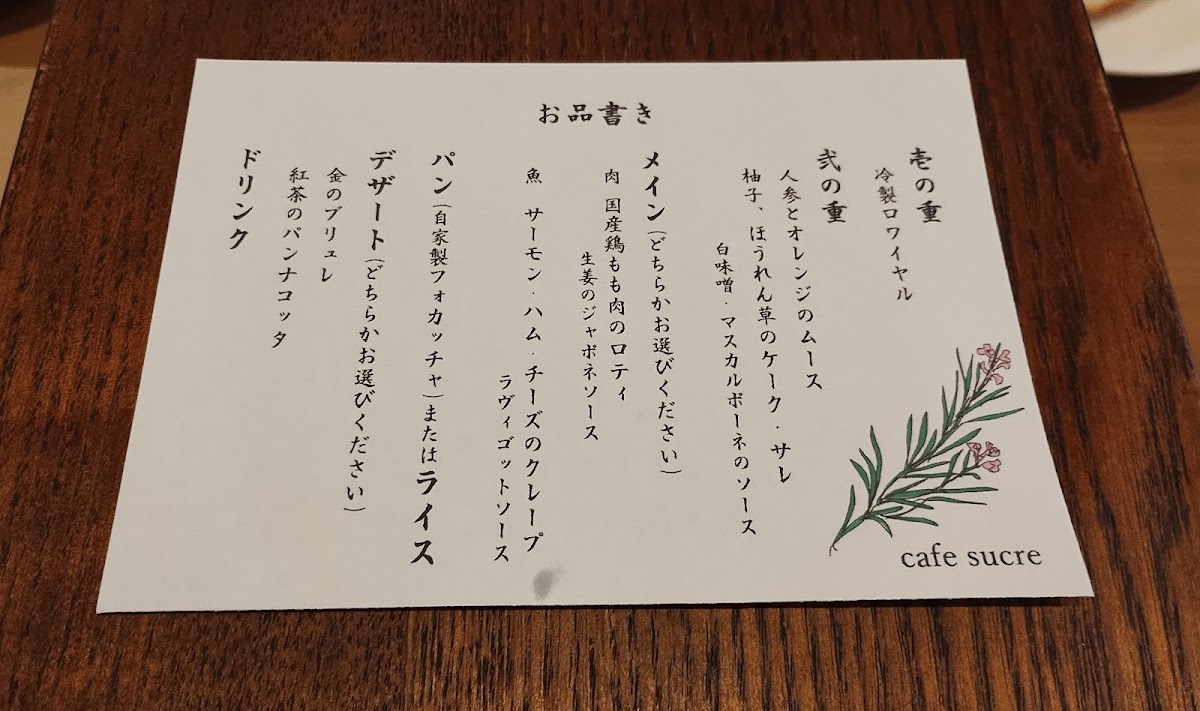 お品書き
壱の重
冷製ロワイヤル
弐の重
人参とオレンジのムース
柚子、ほうれん草のケーク・サレ
白味噌・マスカルポーネのソース
メイン(どちらかお選びください)
肉 国産鶏もも肉のロティ
生姜のジャポネソース
魚 サーモン・ハム・チーズのクレープ
ラヴィゴットソース
パン(自家製フォカッチャ)またはライス
デザート(どちらかお選びください)
金のブリュレ
紅茶のパンナコッタ
ドリンク
cafe sucre